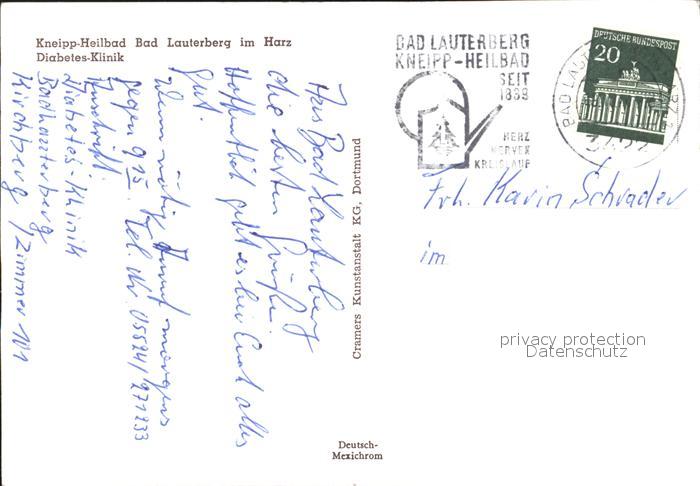 Kneipp-Heilbad Bad Lauterberg im Harz
Diabetes-Klinik
Aus Bad Lauterberg
die besten Grüße.
Hoffentlich geht es bei Euch alles
gut.
Wenn nötig Anruf morgens
gegen 9 15. Tel. Nr. 05524/
Anschrift
Diabetes-Klinik
Bad Lauterberg
Kirchberg / Zimmer 101
Cramers Kunstanstalt KG, Dortmund
Deutsch-
Mexichrom
BAD LAUTERBERG
KNEIPP-HEILBAD
SEIT
1839
HERZ
NERVEN
KREISLAUF
DEUTSCHE BUNDESPOST
20
BAD LAUT
Frh. Karin Schrader
im
privacy protection
Datenschutz